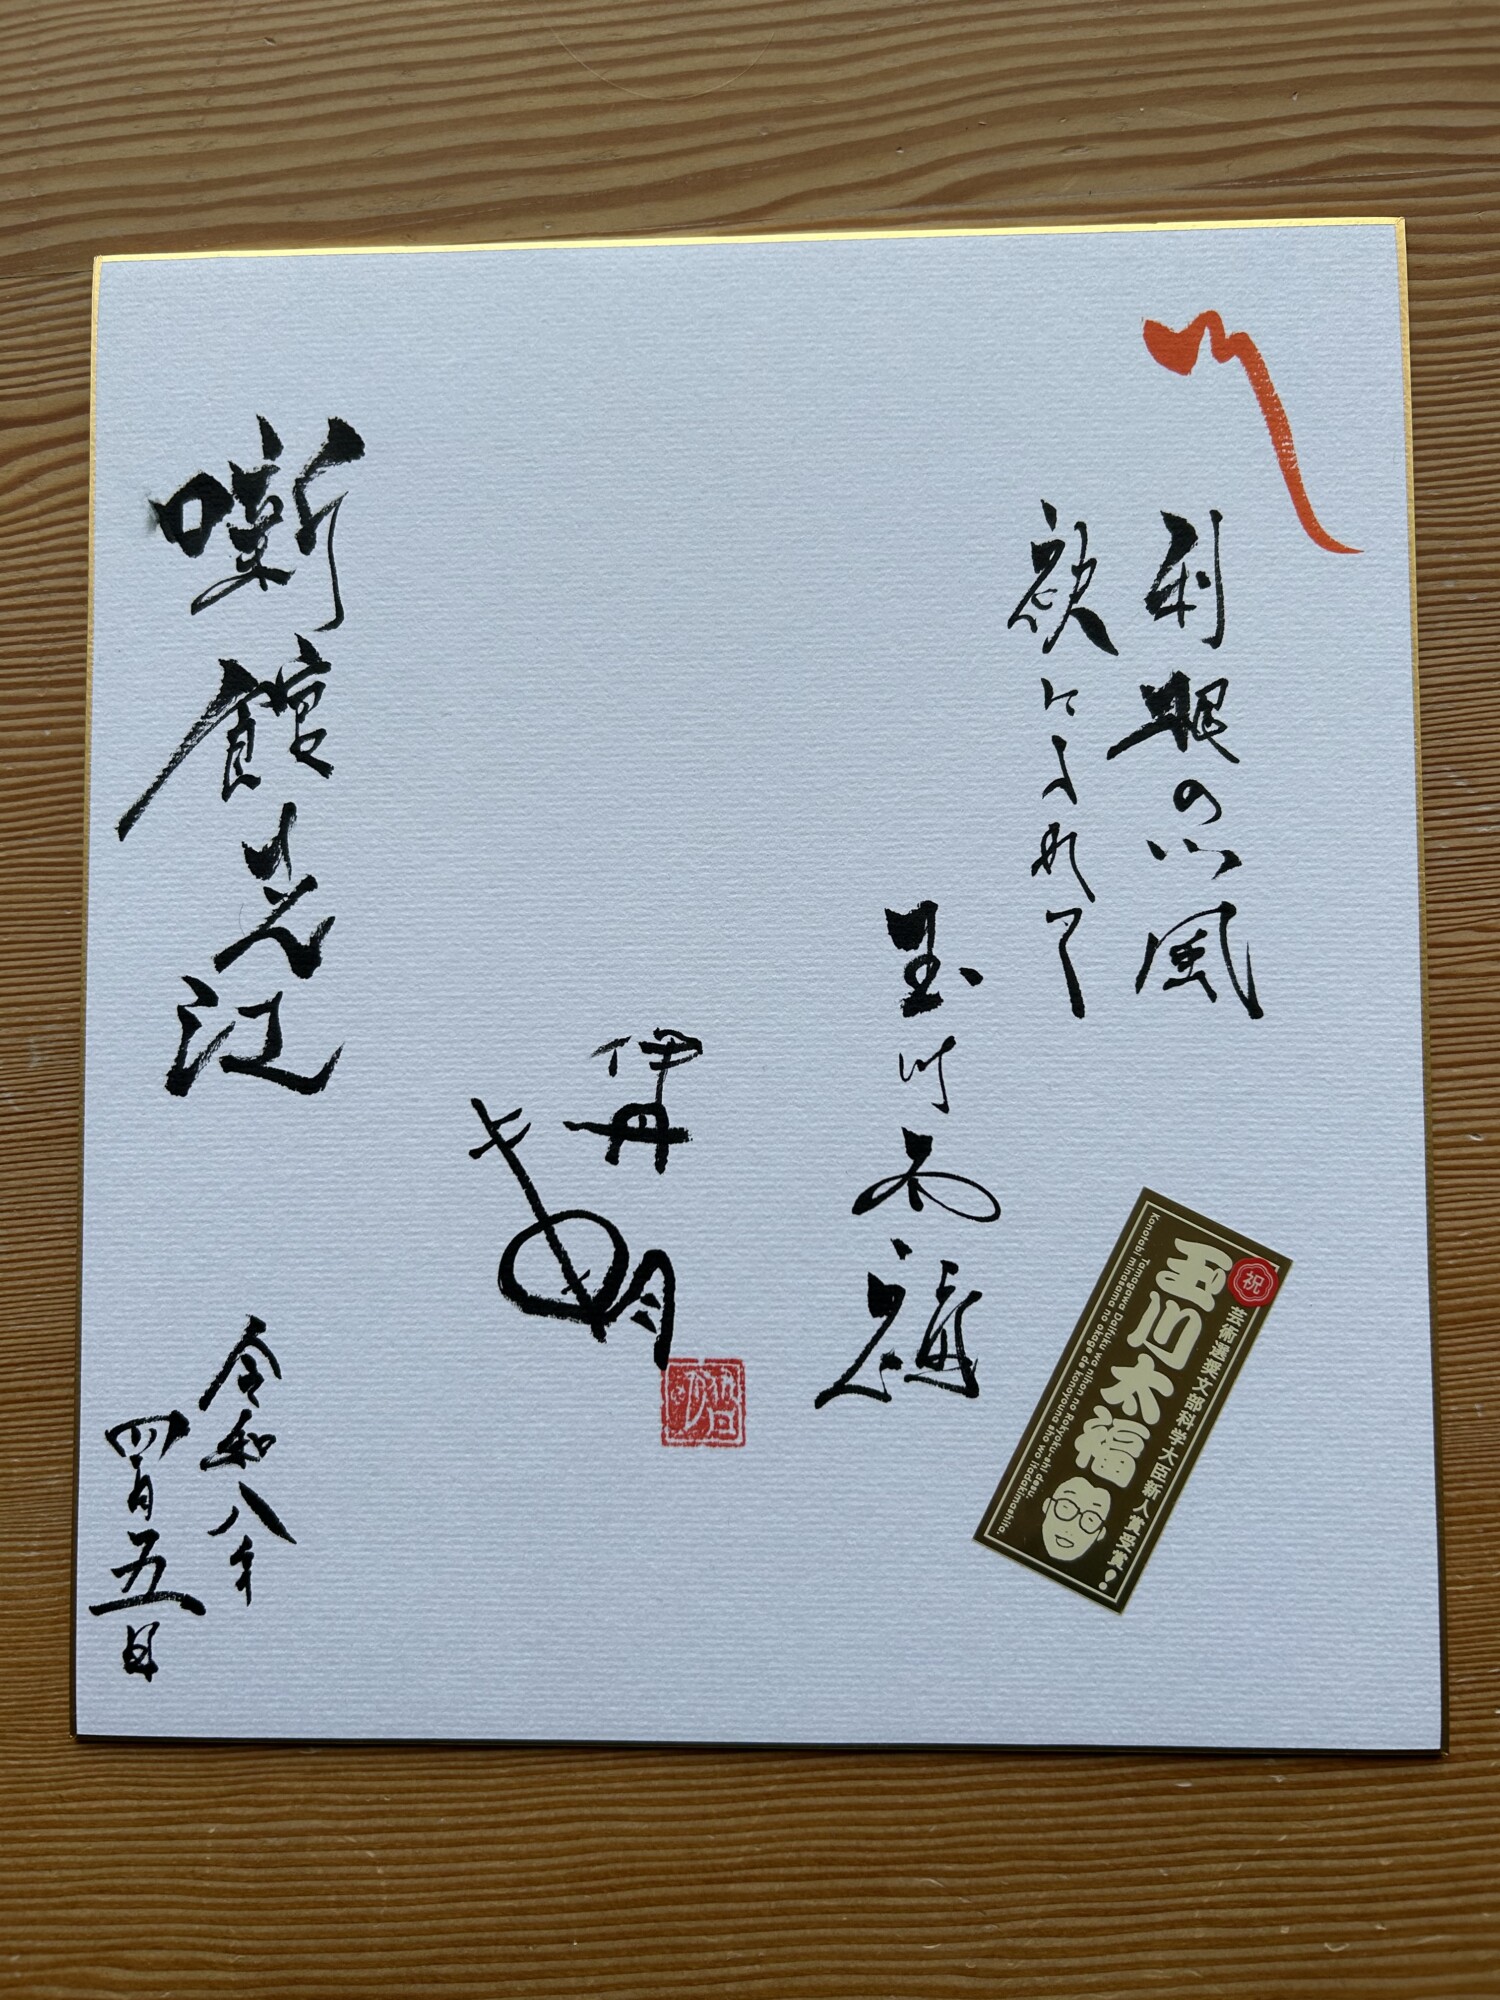 利根の川風
袂に入れて
玉川太福
伊丹明
噺館
江
令和八年
四月五日
祝
芸術選奨文部科学大臣新人賞受賞!
玉川太福
Tamagawa Daifuku wa nihon no Rokyoku-shi desu.
Konotabi minasama no okage de konoyouna sho wo itadakimashita.